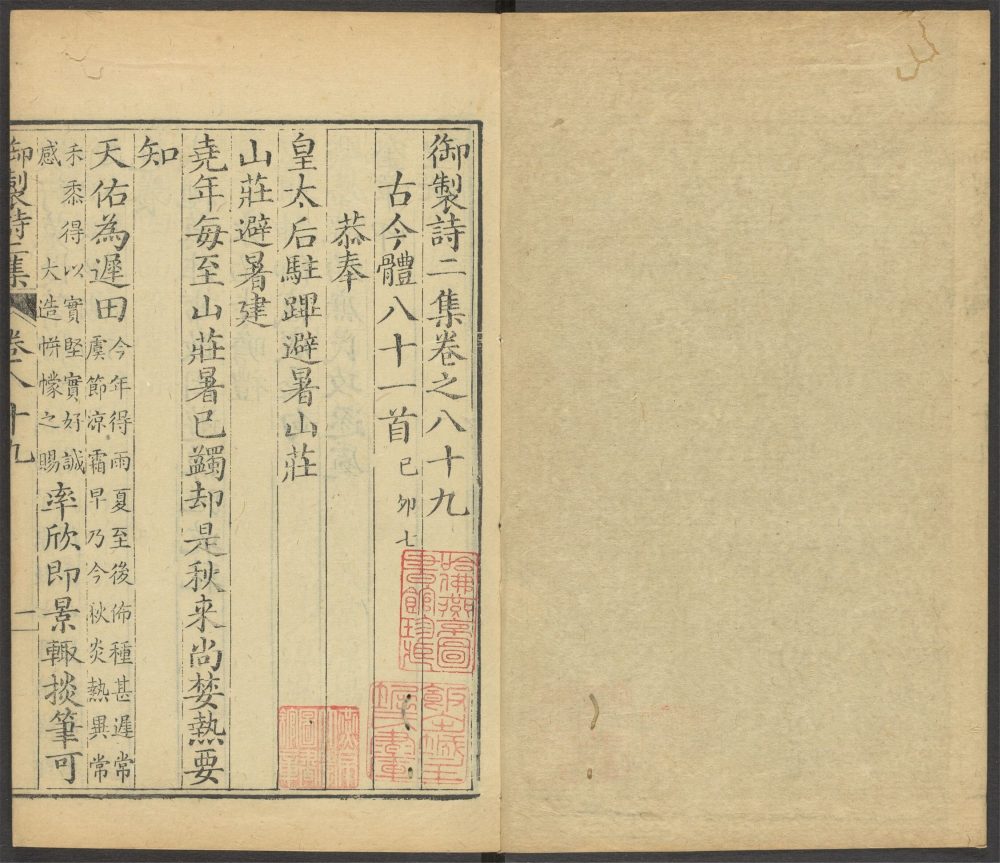 御製詩二集卷之八十九
古今體八十一首己卯七
恭奉
皇太后駐蹕避暑山莊
山莊避暑建
堯年每至山莊暑已蠲却是秋來尚婪熱要
知
天佑為遲田今年得雨夏至後佈種甚遲常
虞節凉霜早乃今秋炎熱異常
禾黍得以實堅實好誠
感大造帡幪之賜率欣即景輙掞筆可
御製詩二集 卷八十九 一
哈佛燕京圖書館珍藏